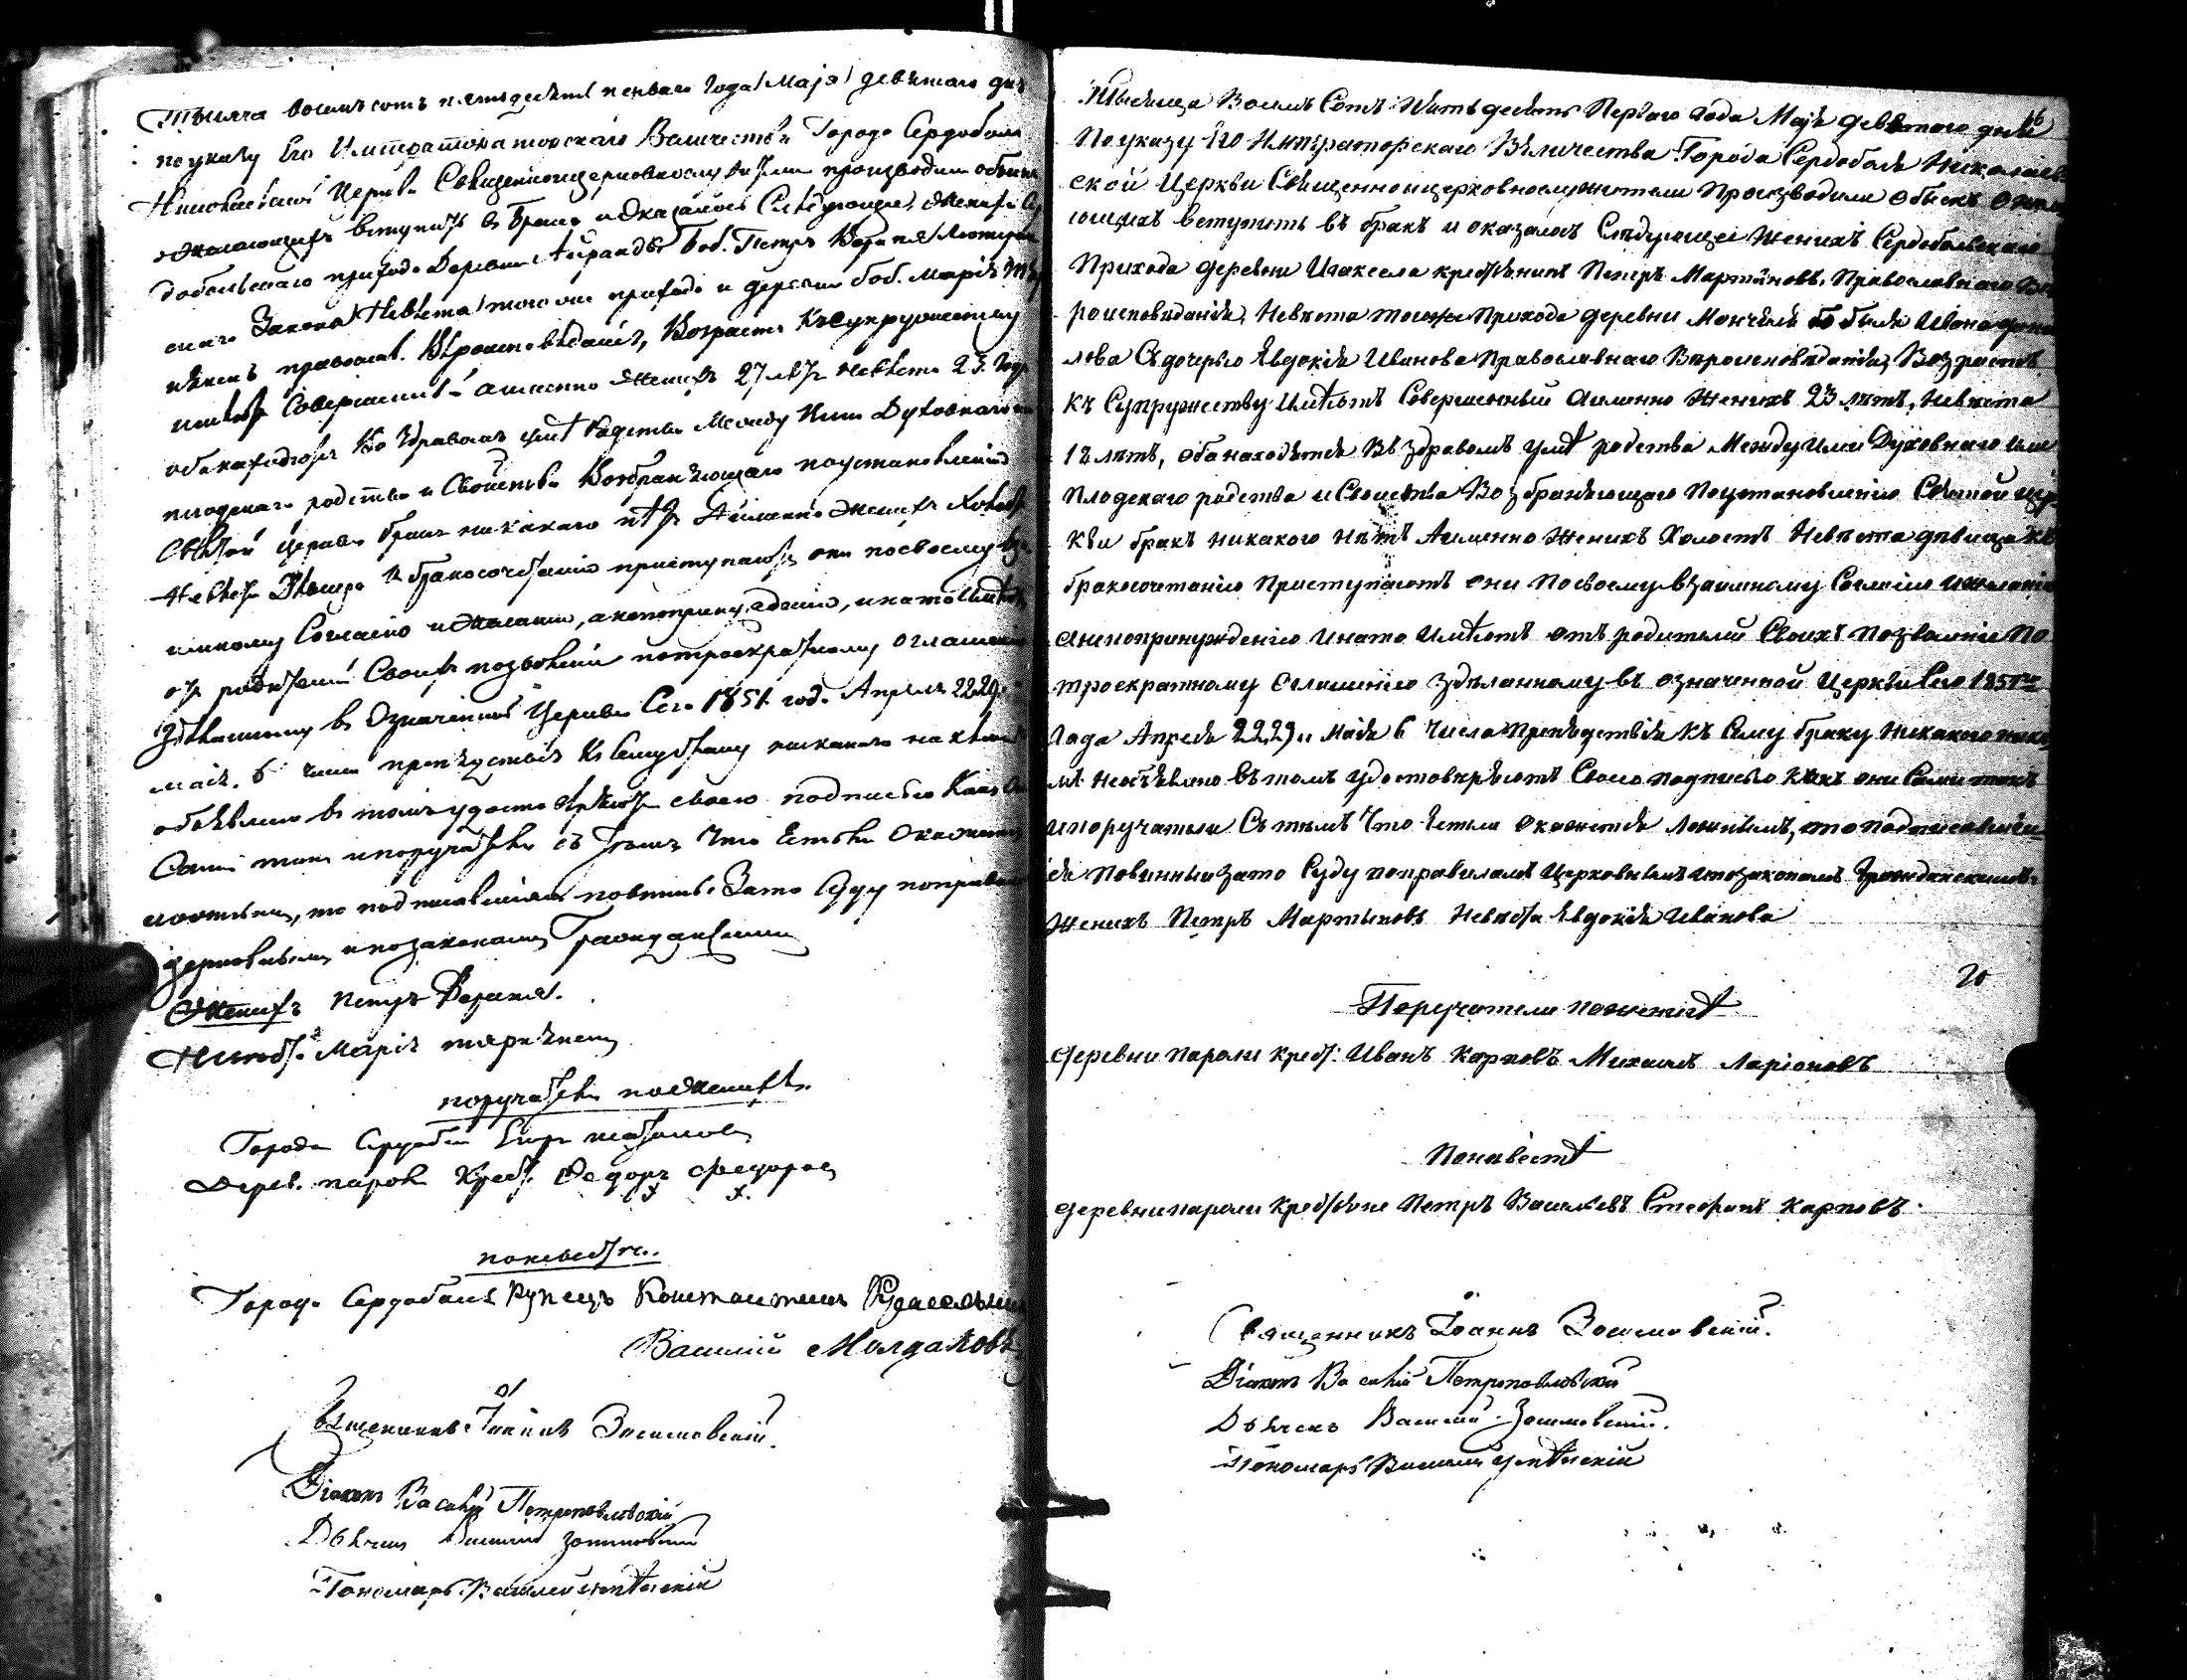 Тысяча восемьсотъ пятьдесятъ перваго года Маія девятаго дня
по указу Его Императорскаго Величества Города Сердоболя
Николаевской Церкви Священноцерковнослужители производили обыскъ
о желающихъ вступить въ бракъ и оказалось Следующее, Женихъ Сер
добольскаго прихода Деревни Боб. Петръ Лютеран
скаго Закона Невѣста тогоже прихода и деревни боб. Марія
православ. Вѣроисповѣданія, Возрастъ Къ супружеству
имѣютъ Совершенный а именно Женихъ 27 лѣтъ Невѣста 23. году
оба находятся Во здравомъ умѣ родства Между Ими Духовнаго или
плодскаго родства и Свойства Возбраняющаго поустановленію
Святой Церкви бракъ никакого нѣтъ Аименно Женихъ Холостъ
Невѣста Дѣвица К бракосочетанію приступаютъ они посвоему вза
имному Согласію и Желанію, а не по принужденію, и на то имѣютъ
отъ родителей Своихъ позволеніе по троекратному оглашенію
здѣланному въ Означенной Церкви Сего 1851. года Апреля 22, 29,
маія. 6 числа препядствія Къ Сему браку никакого никѣмъ
объявлено въ томъ удостовѣряютъ своею подписью Какъ Они
Сами такъ и поручатели съ тѣмъ Что Естьли Окажется
ложнымъ, то подписавшіяся повинны Зато Суду поправиламъ
церковнымъ и позаконамъ Гражданскимъ
Женихъ Петръ
Невѣста Марія
поручатели поженихѣ.
Города Сердоболя Егоръ
Дерев. пароли Крест. Федоръ Федоровъ
х х.
поневѣстѣ.
Города Сердоболя Купецъ Константинъ
Василій Молдаковъ
Священникъ Іоаннъ Зосимовскій.
Діаконъ Василій Петропавловскій
Дьячекъ Василій Зосимовскій
Пономарь Василій
16
Тысяща Восемь Сотъ Пять десятъ Перваго года Маія девятаго дня
По указу Его Императорскаго Величества Города Сердоболя Николаев
ской Церкви Священноицерковнослужители Производили обыскъ о жела
ющихъ вступить въ бракъ и оказалось Слѣдующее Женихъ Сердобольскаго
Прихода деревни крестьянинъ Петръ Мартыновъ, Православнаго Вѣ
роисповиданія, Невѣста тогоже Прихода деревни бобыля Ивана
лова Съ дочерью Евдокія Иванова Православнаго Вѣроисповѣданія, Возрастъ
къ Супружеству имѣютъ Совершенный Аименно Женихъ 23 лѣтъ, Невѣста
18 лѣтъ, оба находятся Въ здравомъ умѣ родства Между ими Духовнаго или
Плодскаго родства и Свойства Возбраняющаго Поустановленію Святой Цер
кви бракъ никакого нѣтъ Аименно Женихъ Холостъ Невѣста дѣвица Къ
бракосочетанію Приступаютъ они Посвоему взаимному Согласію и желанію
Анепопринужденію и на то имѣютъ отъ родителей Своихъ позволеніе По
троекратному Оглашенію здѣланному въ означенной Церкви Сего 1851го
Года Апреля 22, 29 и Маія 6 Числа Препядствія къ Сему браку Никакого никѣ
мъ Необъявлено Въ томъ удостовѣряютъ Своею подписью какъ они Сами такъ
ипоручатели Съ тѣмъ Что Естьли окажется Ложнымъ, то подписавшіи
ся Повинны зато Суду поправиламъ Церковнымъ ипозаконамъ Гражданскимъ.
Женихъ Петръ Мартыновъ Невѣста Евдокія Иванова
20
Поручатели поженихѣ
деревни Пароли крест: Иванъ Карповъ Михаилъ Ларіоновъ
Поневестѣ
деревни пароли крестьяне Петръ Васильевъ Стефанъ Карповъ.
Священникъ Іоаннъ Зосимовскій.
Діаконъ Василій Петропавловскій
Дьячекъ Василій Зосимовскій.
Пономарь Василій